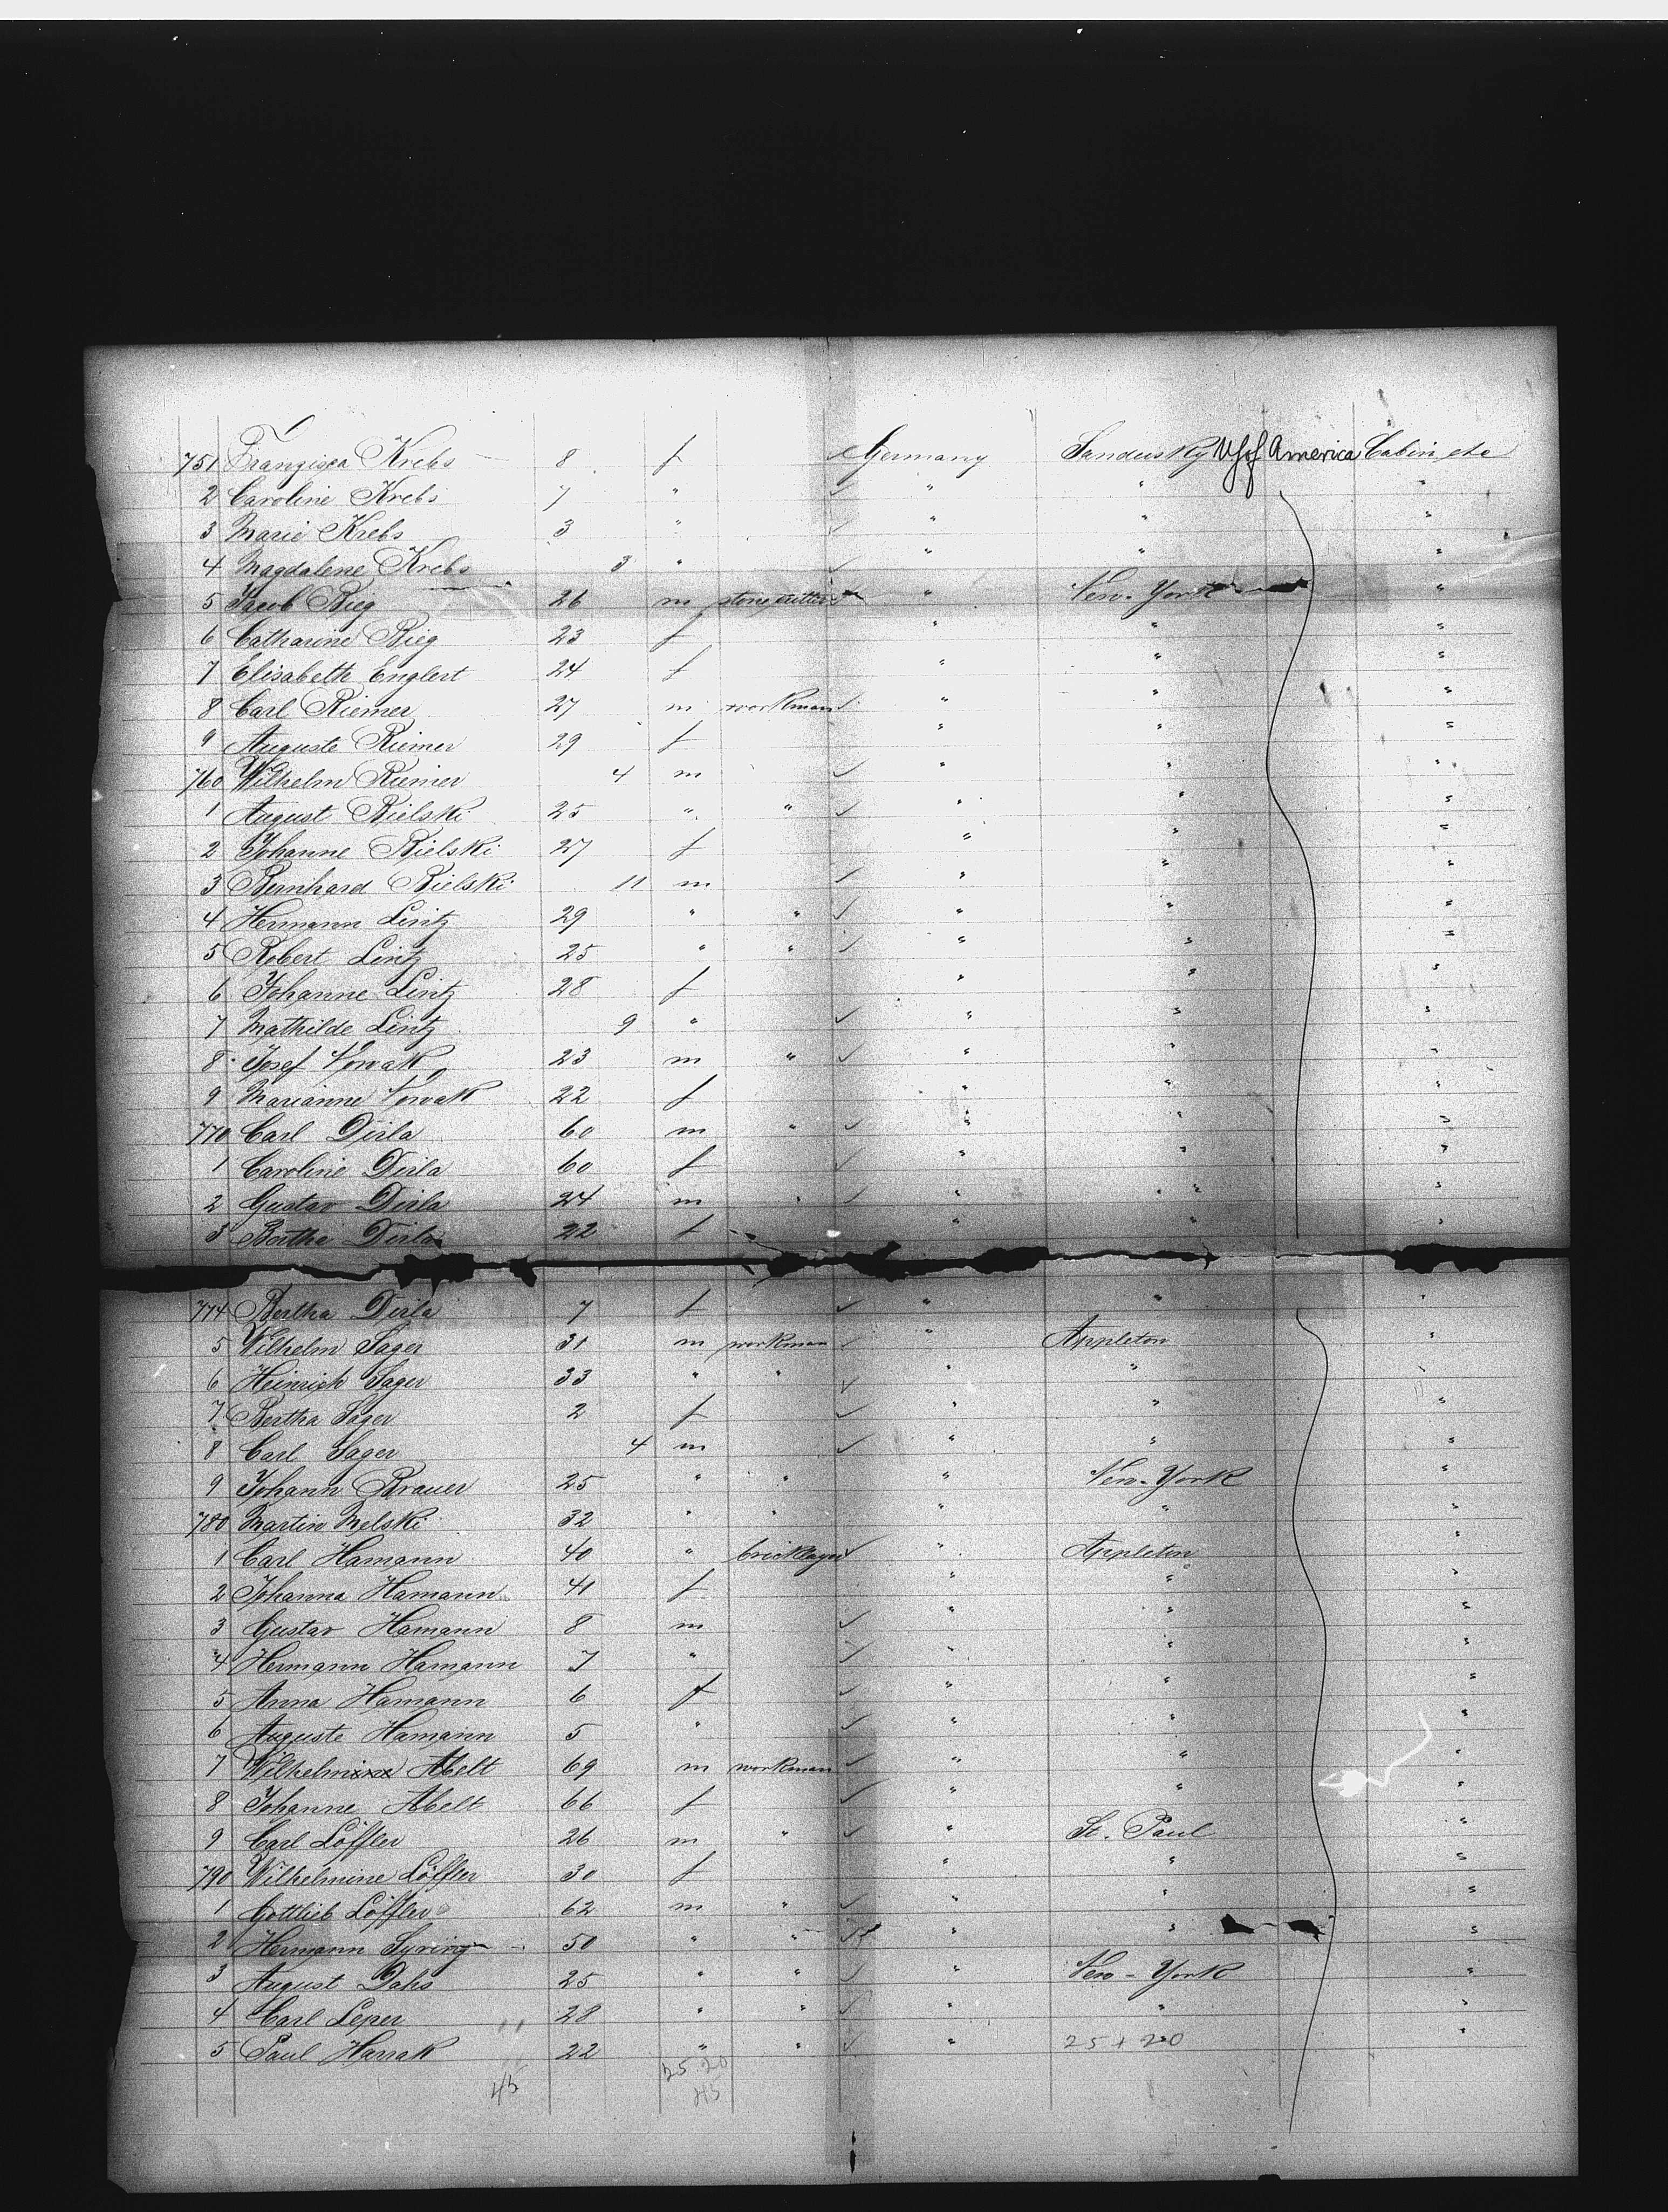 751 Franzisca Krebs 8 f Germany Sandusky US of America Cabin etc
2 Caroline Krebs 7 " ✓ " " "
3 Marie Krebs 3 " ✓ " " "
4 Magdalene Krebs 3 " ✓ " " "
5 Jacob Bieg 26 m stonecutter ✓ " New-York "
6 Catharine Bieg 23 f " " "
7 Elisabeth Englert 24 f " " "
8 Carl Riemer 27 m workman ✓ " " "
9 Auguste Riemer 29 f " " "
760 Wilhelm Riemer 4 m ✓ " " "
1 August Bielski 25 " " ✓ " " "
2 Johanne Bielski 27 f " " "
3 Bernhard Bielski 11 m ✓ " " "
4 Hermann Lintz 29 " " ✓ " " "
5 Robert Lintz 25 " " ✓ " " "
6 Johanne Lintz 28 f " " "
7 Mathilde Lintz 9 " ✓ " " "
8 Josef Nowak 23 m " ✓ " " "
9 Marianne Nowak 22 f " " "
770 Carl Dirla 60 m " ✓ " " "
1 Caroline Dirla 60 f ✓ " " "
2 Gustav Dirla 24 m " ✓ " " "
3 Bertha Dirla 22 f " " "
774 Bertha Dirla 7 f ✓ " " "
5 Wilhelm Sager 31 m workman ✓ " Appleton "
6 Heinrich Sager 33 " " ✓ " " "
7 Bertha Sager 2 f ✓ " " "
8 Carl Sager 4 m ✓ " " "
9 Johann Brauer 25 " " " New-York "
780 Martin Melski 32 " " " " "
1 Carl Hamann 40 " bricklayer ✓ " Appleton "
2 Johanna Hamann 41 f " " "
3 Gustav Hamann 8 m ✓ " " "
4 Hermann Hamann 7 " ✓ " " "
5 Anna Hamann 6 f ✓ " " "
6 Auguste Hamann 5 " ✓ " " "
7 Wilhelm Abelt 69 m workman ✓ " " "
8 Johanne Abelt 66 f ✓ " " "
9 Carl Löffler 26 m " ✓ " St. Paul "
790 Wilhelmine Löffler 30 f " " "
1 Gottlieb Löffler 62 m " ✓ " " "
2 Hermann Syring 50 " " ✓ " " "
3 August Dahs 25 " " ✓ " New-York "
4 Carl Leper 28 " " ✓ " " "
5 Paul Harrak 22 " " ✓ " 25+20 "
45 25 20
45